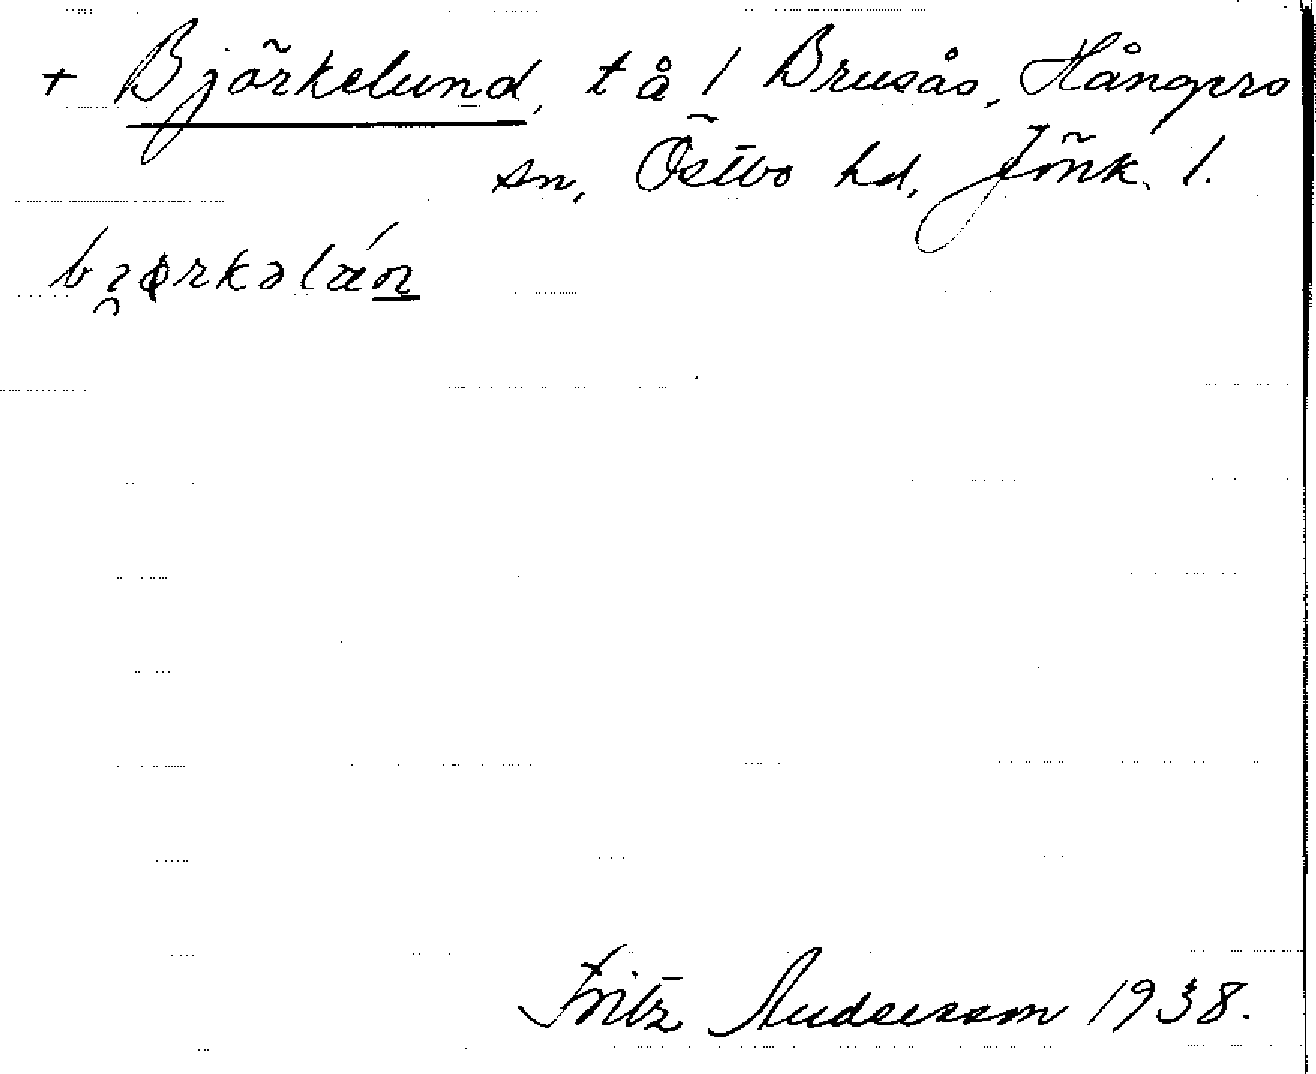 + Björkelund, t å 1 Brusås, Hångers
sn, Östbo hd, Jönk. l.
Fritz Andersson 1938.